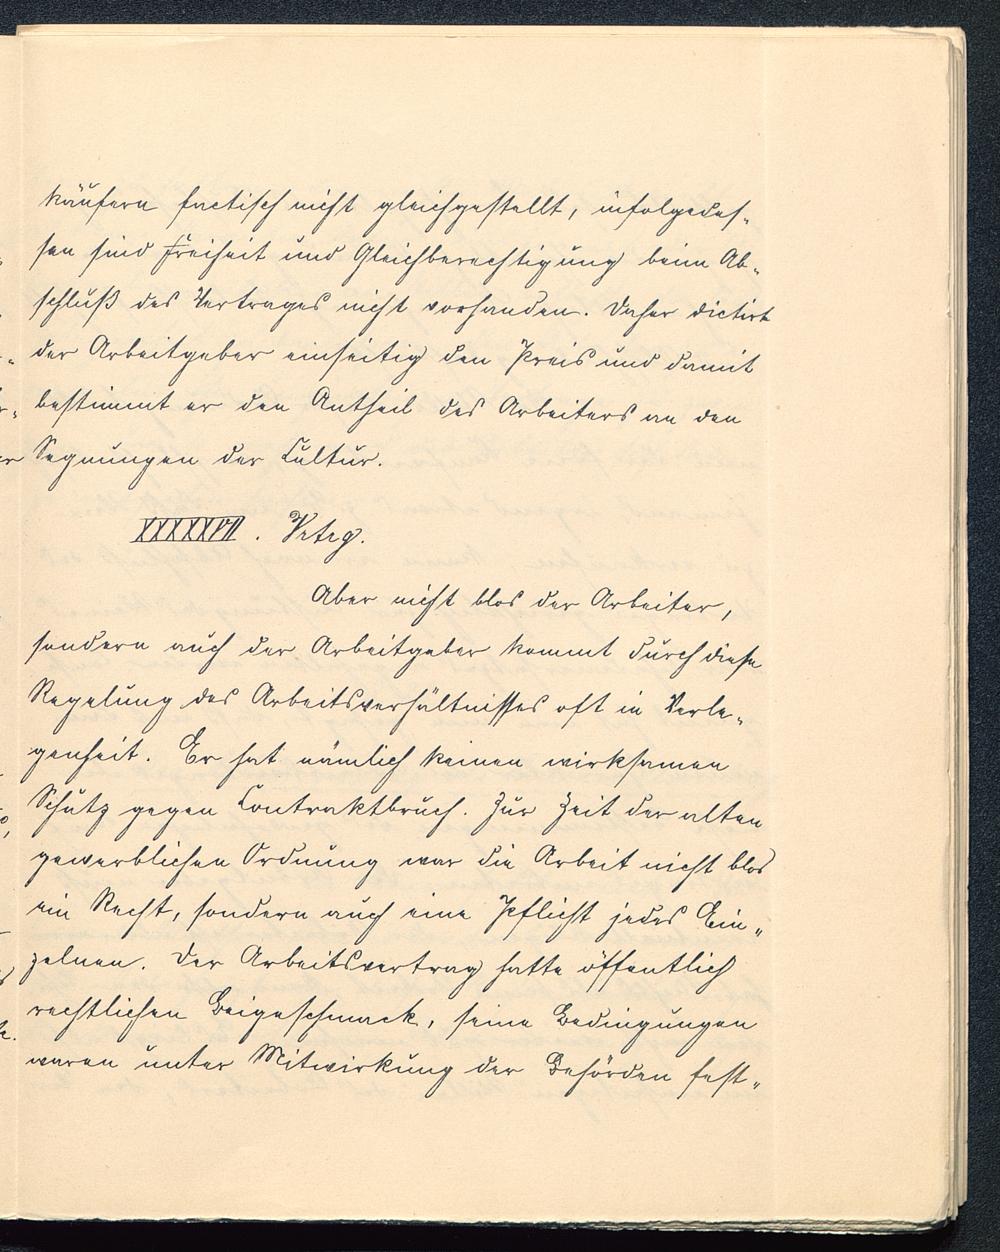 käufern factisch nicht gleichgestellt, infolgedes-
sen sind Freiheit und Gleichberechtigung beim Ab-
schluß des Vertrages nicht vorhanden. Daher dictirt
der Arbeitgeber einseitig den Preis und damit
bestimmt er den Antheil des Arbeiters an den
Segnungen der Cultur.
XXXXXVII. Vrtrg.
Aber nicht blos der Arbeiter,
sondern auch der Arbeitgeber kommt durch diese
Regelung des Arbeitsverhältnisses oft in Verle-
genheit. Er hat nämlich keinen wirksamen
Schutz gegen Contraktbruch. Zur Zeit der alten
gewerblichen Ordnung war die Arbeit nicht blos
ein Recht, sondern auch eine Pflicht jedes Ein-
zelnen. Der Arbeitsvertrag hatte öffentlich
rechtlichen Beigeschmack, seine Bedingungen
waren unter Mitwirkung der Behörden fest-